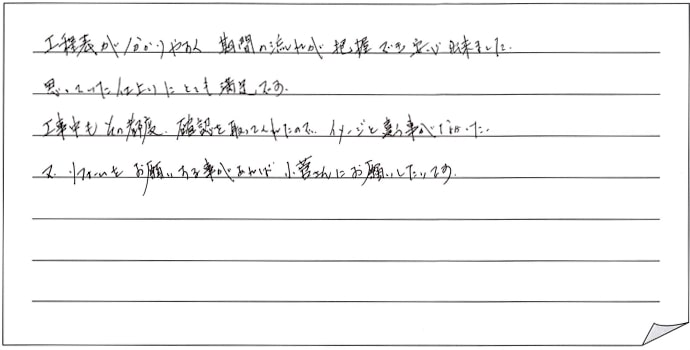 工程表が分かりやすく 期間の流れが 把握でき 安心出来ました。
思っていた仕上りにとても満足です。
工事中もその都度、確認を取ってくれたので、イメージと違う事がなかった。
又、リフォームをお願いする事があれば 小菅さんにお願いしたいです。